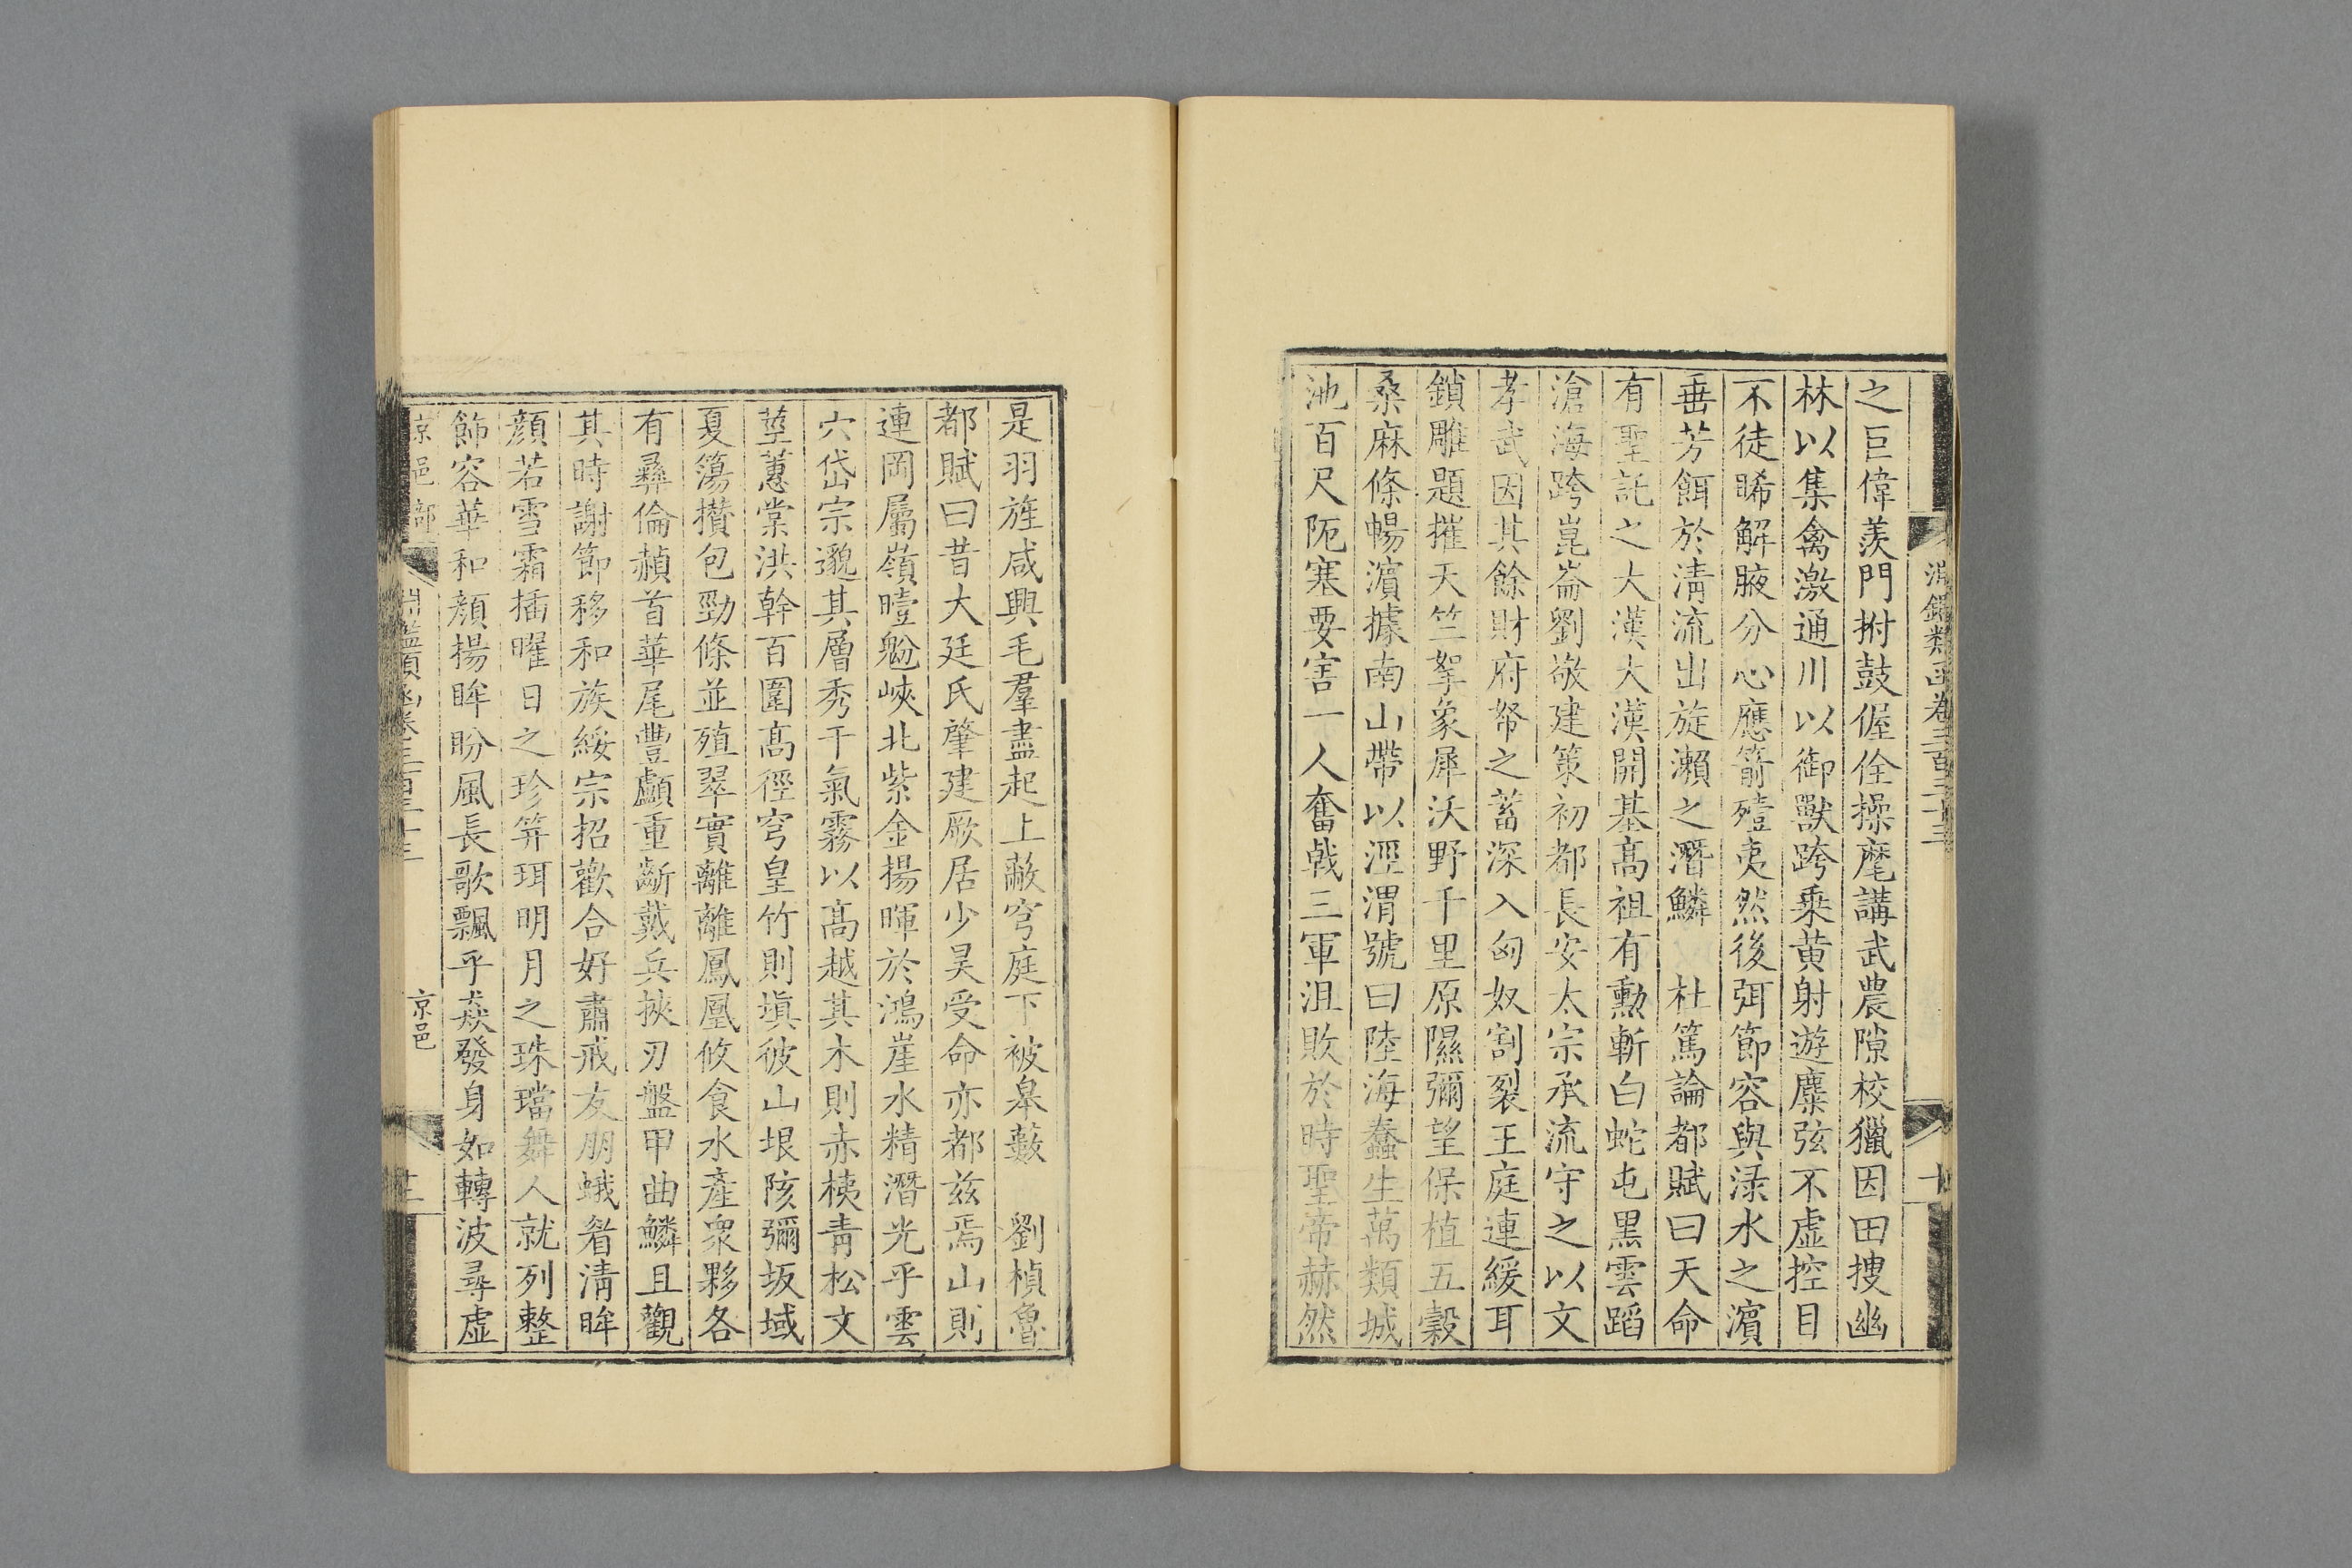 淵鑑類函卷三百三十三
十
之巨偉羨門拊鼓偓佺操麾講武農隙校獵因田捜幽
林以集禽激通川以御獸跨乗黄射遊麋弦不虚控目
不徒睎解腋分心應箭殪夷然後弭節容與渌水之濱
垂芳餌於清流出旋瀨之潛鱗　杜篤論都賦曰天命
有聖託之大漢大漢開基髙祖有勳斬白蛇屯黒雲蹈
滄海跨崑崙劉敬建策初都長安太宗承流守之以文
孝武因其餘財府帑之蓄深入匈奴割裂王庭連緩耳
鎖雕題摧天竺牽象犀沃野千里原隰彌望保植五穀
桑麻條暢濵據南山帶以涇渭號曰陸海蠢生萬類城
池百尺阨塞要害一人奮戟三軍沮敗於時聖帝赫然
是羽旌咸興毛羣盡起上蔽穹庭下被皋藪　劉楨魯
都賦曰昔大廷氏肇建厥居少昊受命亦都兹焉山則
連岡屬嶺暟魁峽北紫金揚暉於鴻崖水精潛光乎雲
穴岱宗邈其層秀干氣霧以髙越其木則赤桋青松文
莖蕙棠洪幹百圍髙徑穹皇竹則塡彼山垠陔彌坂域
夏簜攢包勁條並殖翠實離離鳳凰攸食水產衆夥各
有彞倫頳首華尾豐顱重齗戴兵挾刃盤甲曲鱗且觀
其時謝節移和族綏宗招歡合好肅戒友朋蛾眉清眸
顏若雪霜插曜日之珍笄珥明月之珠璫舞人就列整
飾容華和顏揚眸眄風長歌飄乎猋發身如轉波尋虚
京邑部
淵鑑類函卷三百三十三
京邑
十二